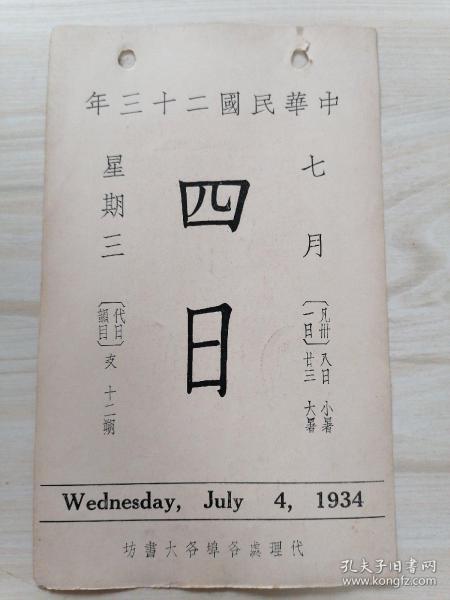 中華民國二十三年
七月
四日
星期三
〔凡卅一日〕
八日 小暑
廿三 大暑
〔代日韻目〕
支 十二期
Wednesday, July 4, 1934
代理處各埠各大書坊
孔夫子旧书网
www.kongfz.com